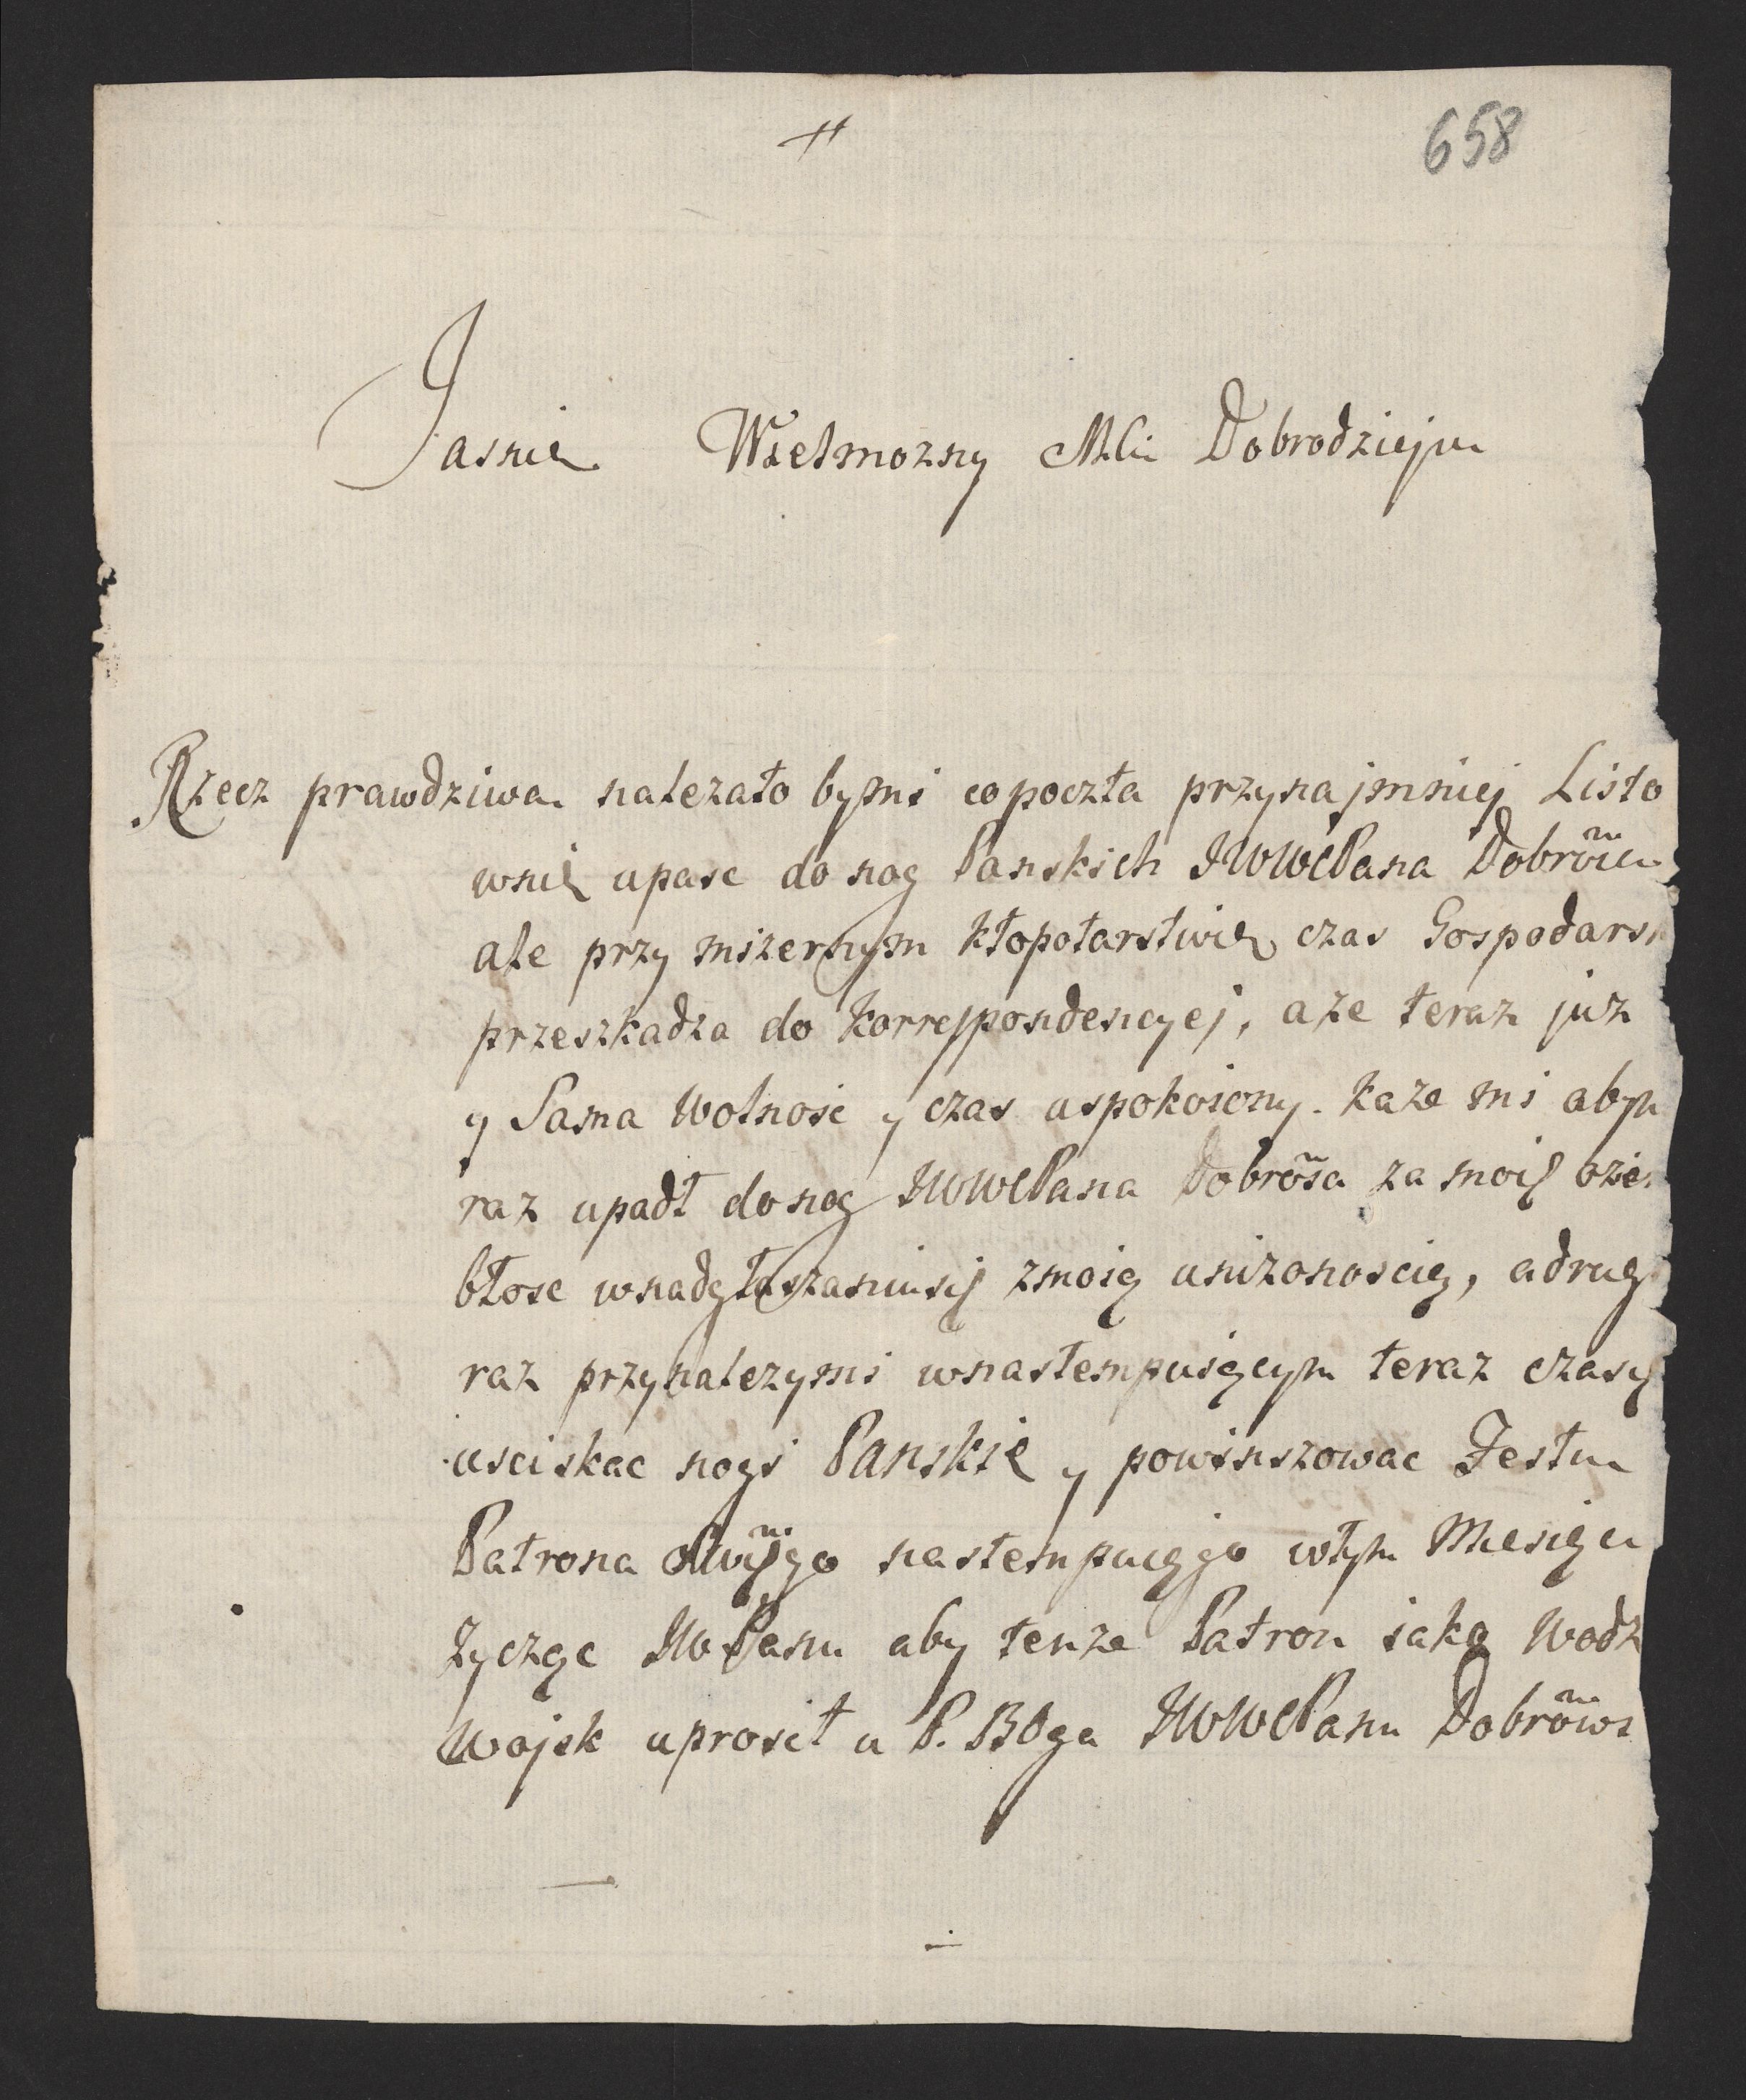 658
Jasnie Wielmozny Mci Dobrodzieju
Rzecz prawdziwa nalezało bymi copoczta przynajmniej Listo
wnie upasc do nog Panskich JWWCPana Dobro͠ia
ale przy mizernym kłopotarstwie czas Gospodarsk
przeszkadza do korrespondencyej, ale teraz juz
y Sama Wolnosc y czas uspokoiony. kaze mi abym
raz upadł donog JWWCPana Dobro͠ia za moię ozię
błosc zmoią unizonoscią, adrugi
raz przynalezymi wnastempuiącym teraz czasię
usciskac nogi Panskie y powinszowac Festu
Patrona nastempuiągo wtym Miesiącu
Zycząc JWPanu aby tenze Patron iako Wodz
Wojsk uprosił u P. BOga JWWCPanu Dobro͠iowi